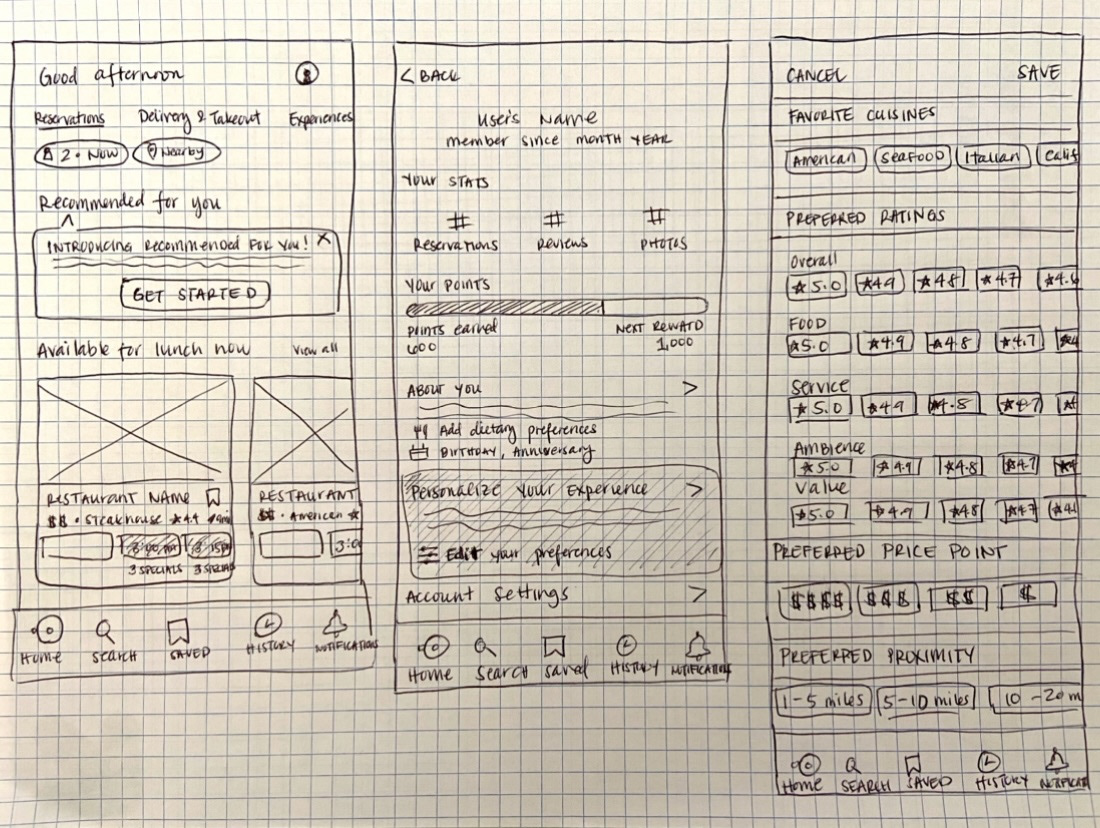 Good afternoon
Reservations Delivery & Takeout Experiences
2 • Now Nearby
Recommended for you
INTRODUCING Recommended FOR YOU! X
GET STARTED
Available for lunch now View all
RESTAURANT NAME
$$ • Steakhouse ★4.4
RESTAURANT
$$ • American ★
3 SPECIALS
Home Search SAVED HISTORY NOTIFICATIONS
< BACK
User's Name
member since month YEAR
Your STATS
# # #
Reservations Reviews PHOTOS
Your POINTS
POINTS earned NEXT REWARD
600 1,000
ABOUT YOU >
Add dietary preferences
BIRTHDAY, Anniversary
Personalize Your Experience >
Edit your preferences
Account Settings >
Home Search Saved HISTORY NOTIFICATIONS
CANCEL SAVE
FAVORITE CUISINES
American SEAFOOD Italian Calif
PREFERRED RATINGS
Overall
★5.0 ★4.9 ★4.8 ★4.7 ★4.6
FOOD
★5.0 ★4.9 ★4.8 ★4.7 ★4
Service
★5.0 ★4.9 ★4.8 ★4.7 ★4
Ambience
★5.0 ★4.9 ★4.8 ★4.7 ★4
Value
★5.0 ★4.9 ★4.8 ★4.7 ★4
PREFERRED PRICE POINT
$$$$ $$$ $$ $
PREFERRED PROXIMITY
1-5 miles 5-10 miles 10-20 m
Home SEARCH SAVED HISTORY NOTIFICATI